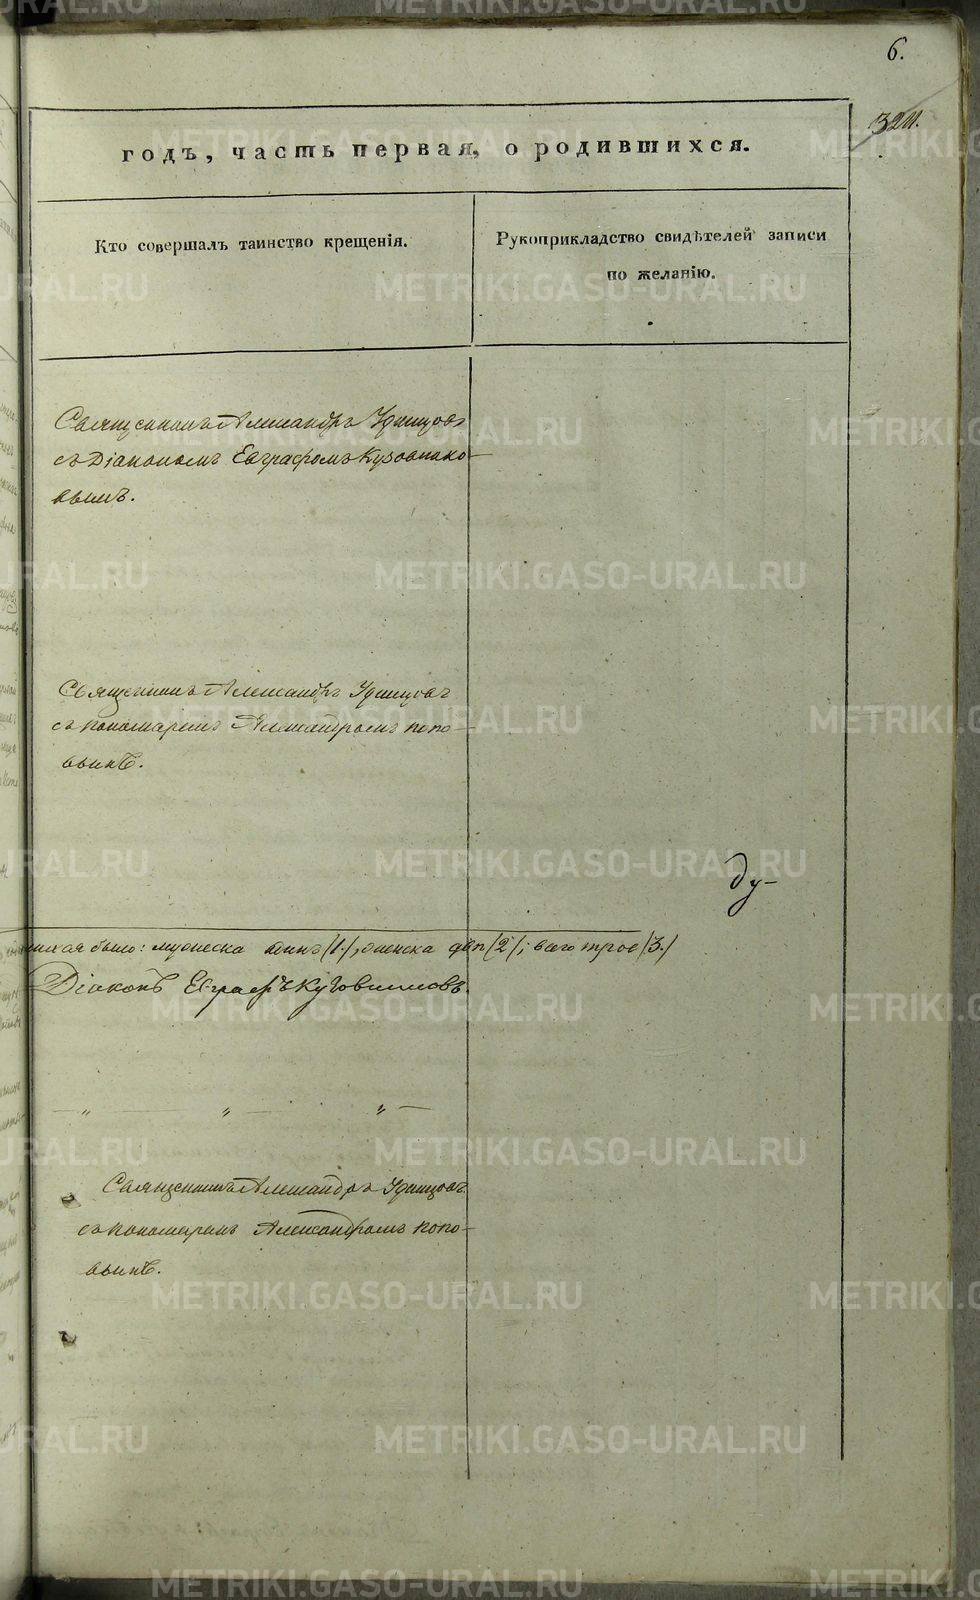 6.
324.
годъ, часть первая, о родившихся.
Кто совершалъ таинство крещенія.
Рукоприкладство свидѣтелей записи
по желанію.
Священникъ Александръ Удинцовъ
съ Діакономъ Евграфомъ Кузовнико-
вымъ.
Священникъ Александръ Удинцовъ
съ пономаремъ Александромъ Попо-
вымъ.
ду-
было: мужеска одинъ /1/, женска двѣ /2/; всего трое /3./
Діаконъ Евграфъ Кузовниковъ.
Священникъ Александръ Удинцовъ
съ пономаремъ Александромъ Попо-
вымъ.
METRIKI.GASO-URAL.RU